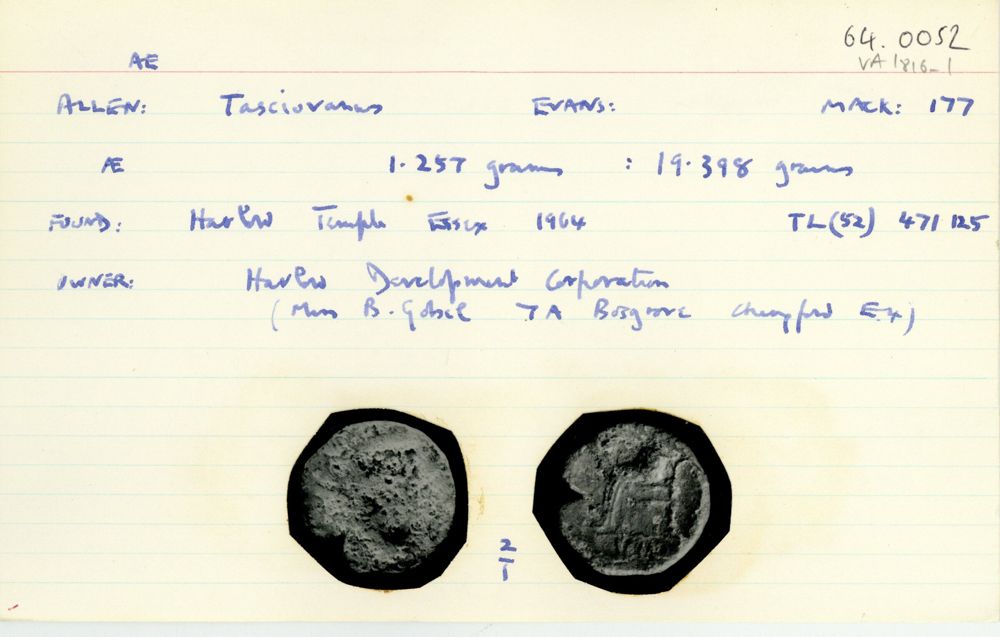 64.0052
VA 1816-1
AE
ALLEN: Tasciovanus EVANS: MACK: 177
Æ 1.257 grams : 19.398 grams
FOUND: Harlow Temple Essex 1964 TL(52) 471 125
OWNER: Harlow Development Corporation
(Miss B. 7A Bosgrove Chingford E4)
2
1